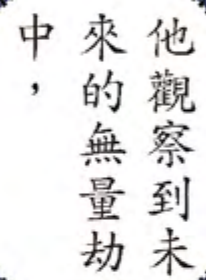 他觀察到未
來的無量劫
中，